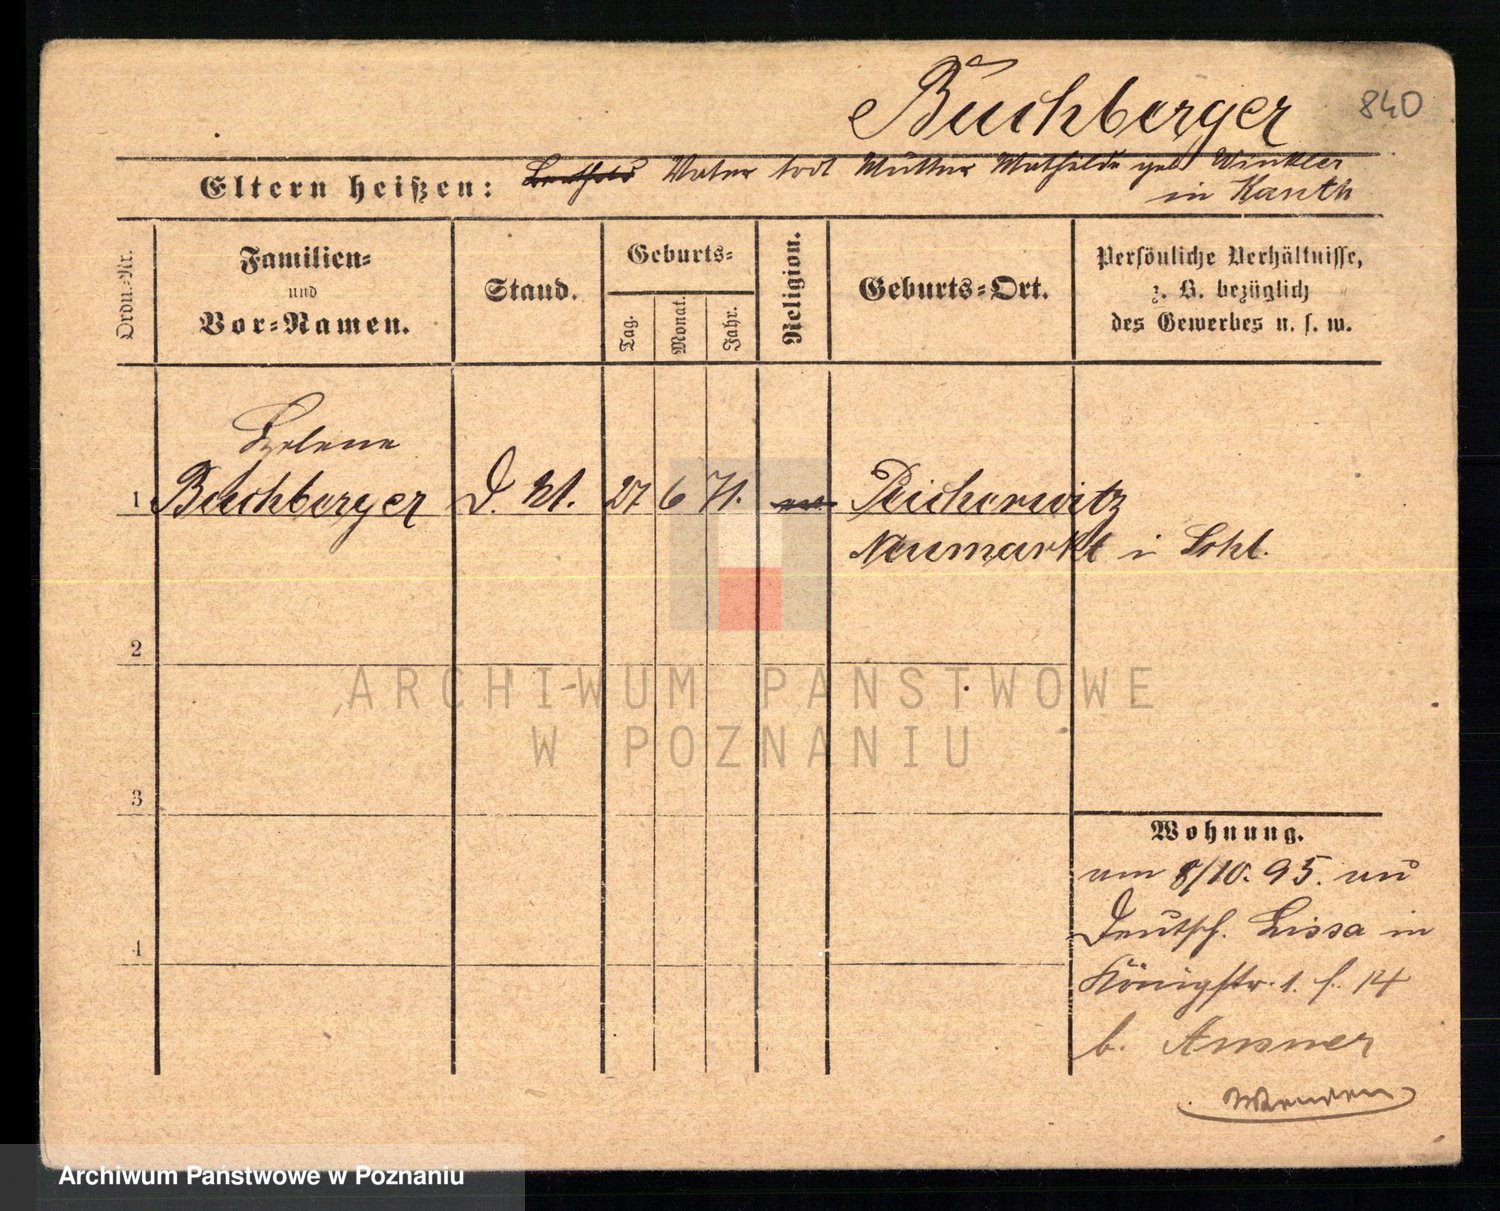 Buchberger
840
Eltern heißen: Vater todt Mutter Mathilde geb Winkler
in Kanth
Ordn.-Nr.
Familien-
und
Vor-Namen.
Stand.
Geburts-
Tag.
Monat.
Jahr.
Religion.
Geburts-Ort.
Persönliche Verhältnisse,
z. B. bezüglich
des Gewerbes u. s. w.
Helene
1 Buchberger D. M. 27 6 71. Peicherwitz
Neumarkt i Schl.
2
3
4
Wohnung.
am 8/10. 95. aus
Deutsch. Lissa in
Königstr. 1. f. 14
b.
Wenden
ARCHIWUM PAŃSTWOWE
W POZNANIU
Archiwum Państwowe w Poznaniu